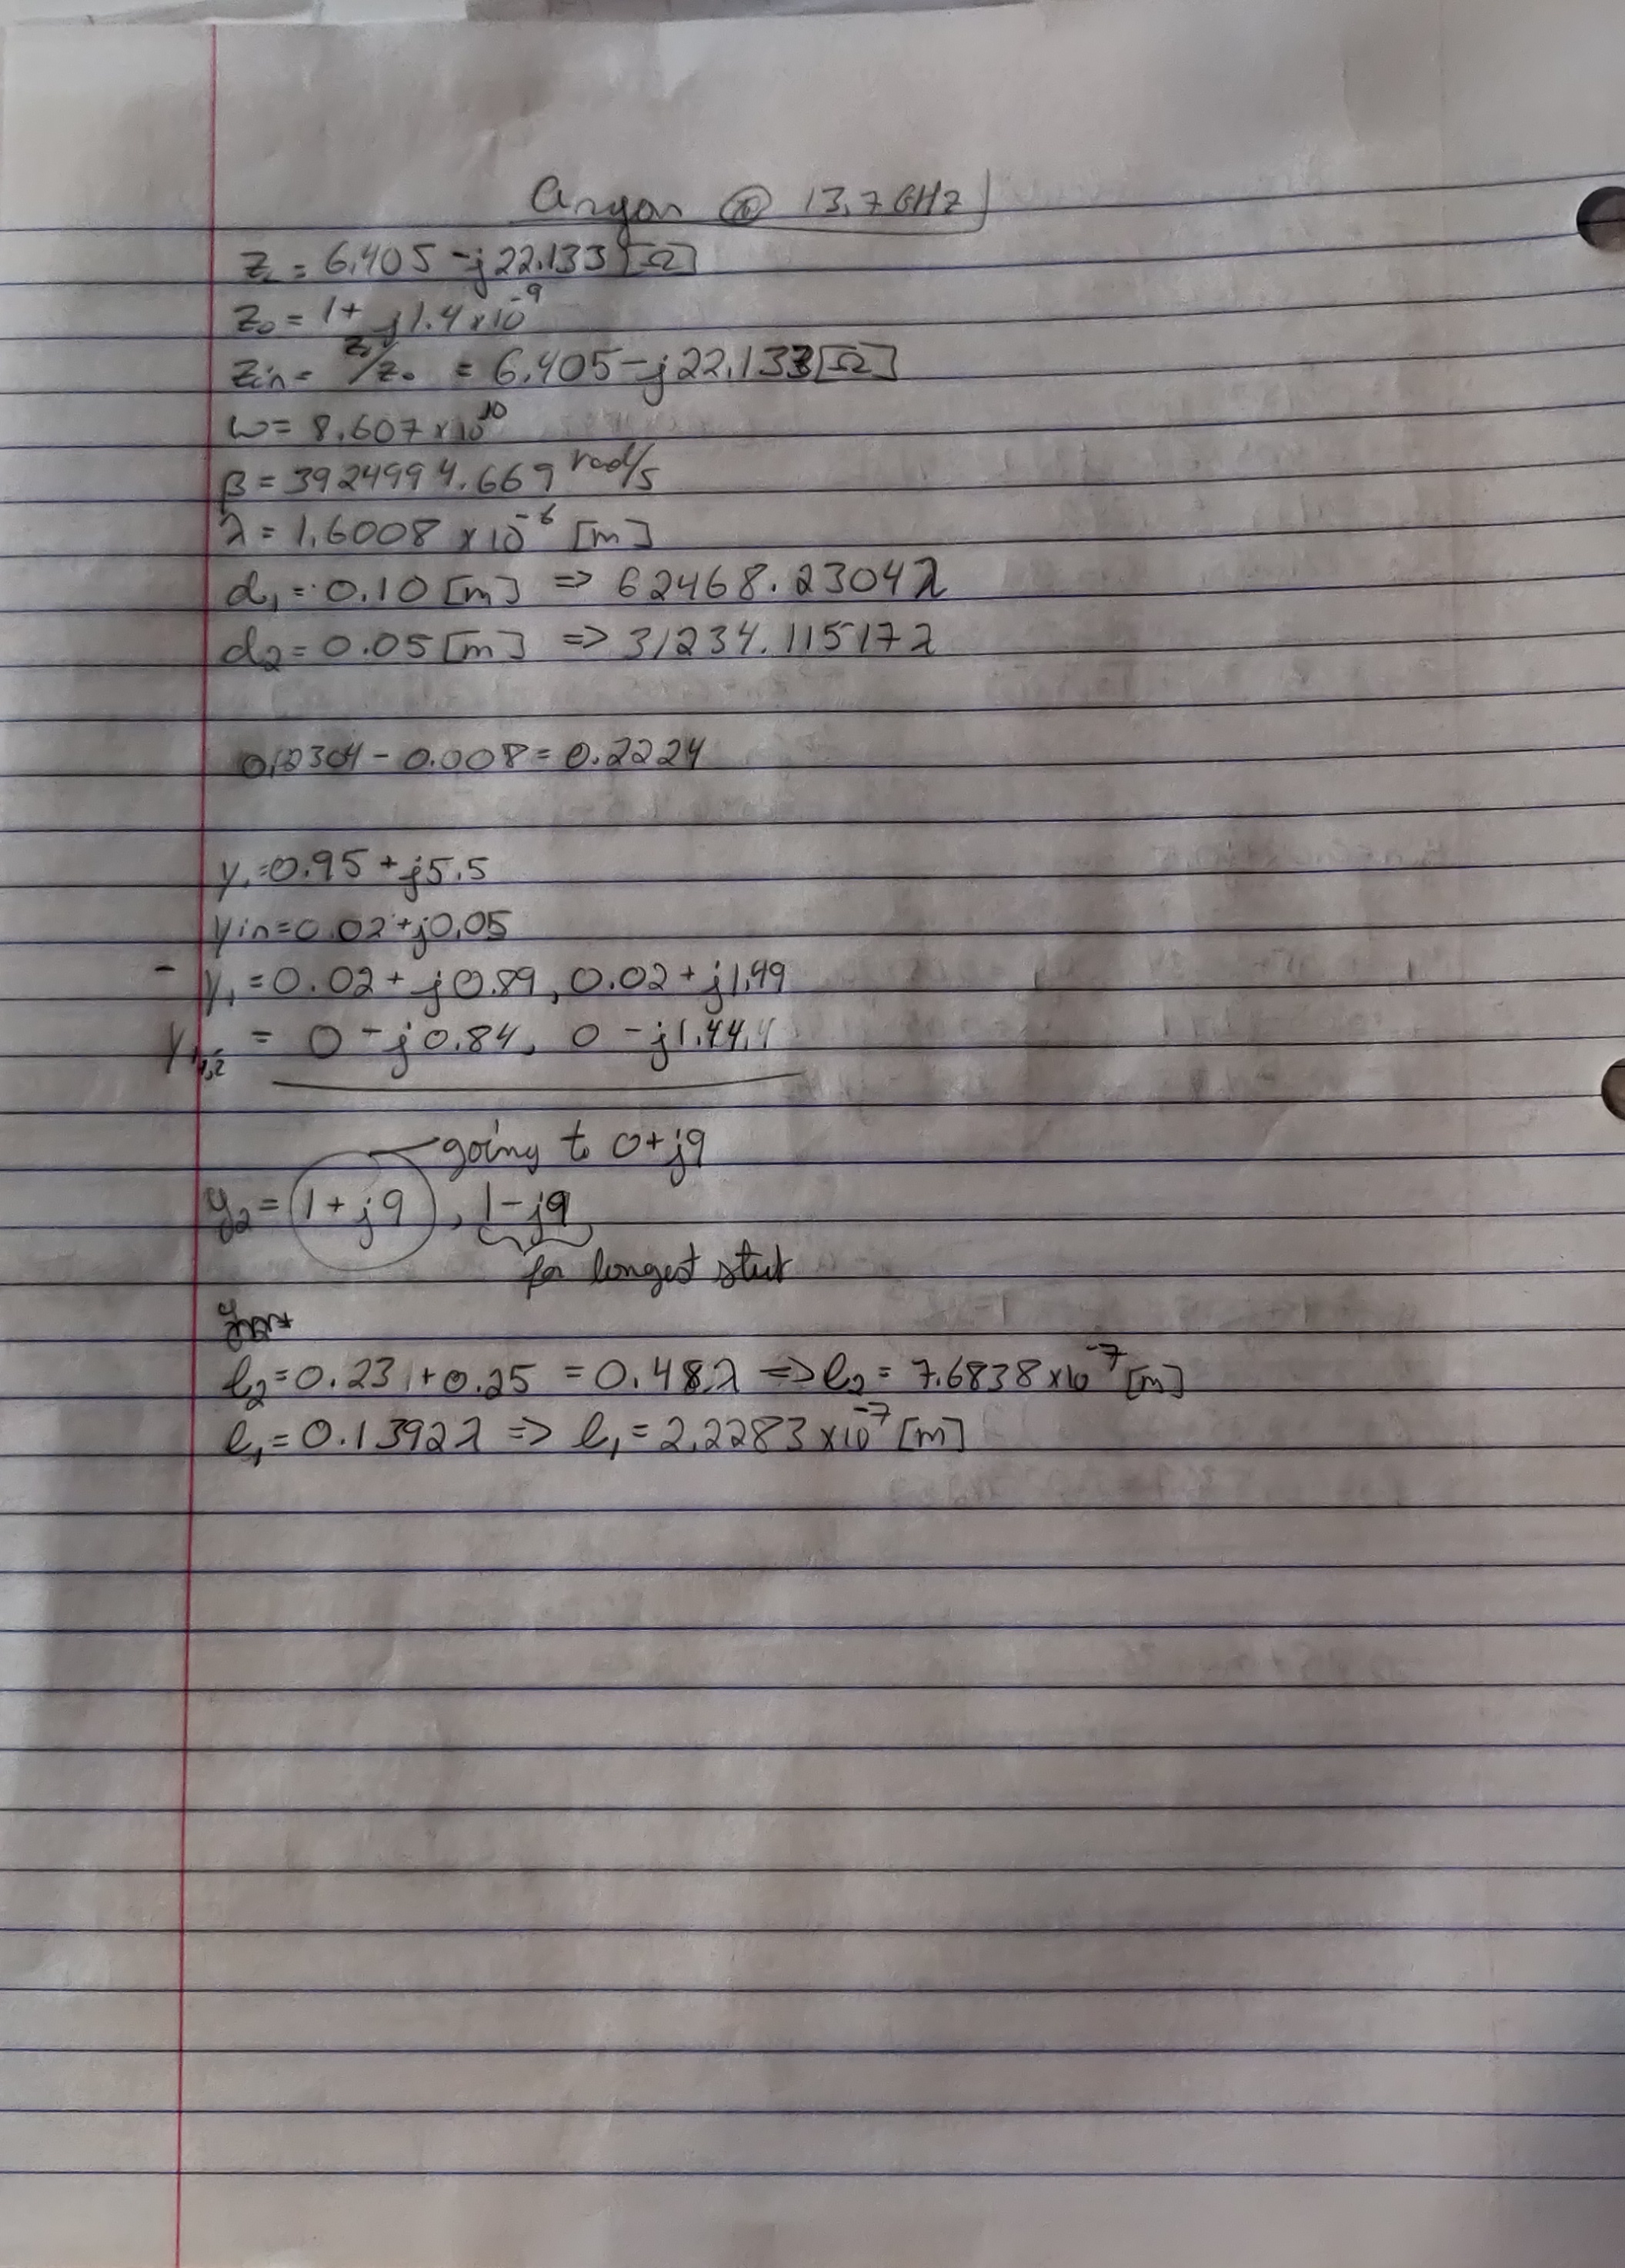 Argon @ 13.7 GHz
Z_L = 6.405 - j22.133 [Ω]
Z_0 = 1 + j1.4 x 10^-9
Z_in = Z_L/Z_0 = 6.405 - j22.133 [Ω]
ω = 8.607 x 10^10
β = 3924994.669 rad/s
λ = 1.6008 x 10^-6 [m]
d_1 = 0.10 [m] => 62468.2304λ
d_2 = 0.05 [m] => 31234.11517λ
0.2304 - 0.008 = 0.2224
y_1 = 0.95 + j5.5
y_in = 0.02 + j0.05
- y_1 = 0.02 + j0.89, 0.02 + j1.49
= 0 - j0.84, 0 - j1.44
going to 0+j9
y_2 = 1+j9, 1-j9
for longest stub
l_2 = 0.231 + 0.25 = 0.48λ => l_2 = 7.6838 x 10^-7 [m]
l_1 = 0.1392λ => l_1 = 2.2283 x 10^-7 [m]